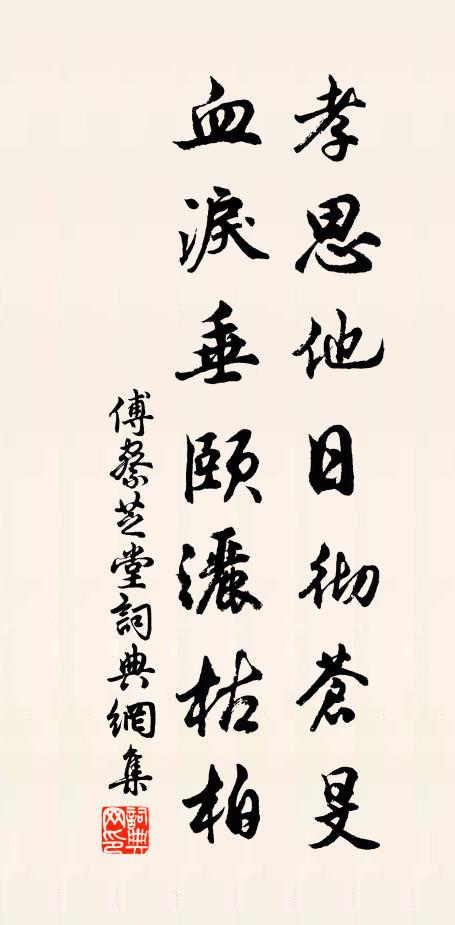 孝思他日彻苍旻
血淚垂頤灑枯柏
傅蔡芝堂詞典網集
詞典网印